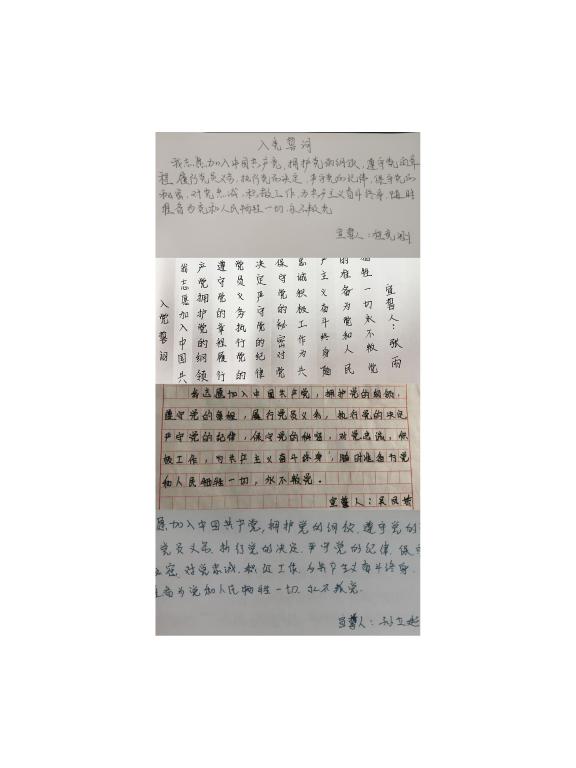 入党誓词
我志愿加入中国共产党，拥护党的纲领，遵守党的章
程，履行党员义务，执行党的决定，严守党的纪律，保守党的
秘密，对党忠诚，积极工作，为共产主义奋斗终身，随时
准备为党和人民牺牲一切，永不叛党
宣誓人：程克刚
入党誓词
我志愿加入中国共
产党拥护党的纲领
遵守党的章程履行
党员义务执行党的
决定严守党的纪律
保守党的秘密对党
忠诚积极工作为共
产主义奋斗终身随
的准备为党和人民
牺牲一切永不叛党
宣誓人：张雨
我志愿加入中国共产党，拥护党的纲领，
遵守党的章程，履行党员义务，执行党的决定
严守党的纪律，保守党的秘密，对党忠诚，积
极工作，为共产主义奋斗终身，随时准备为党
和人民牺牲一切，永不叛党。
宣誓人：吴凤
愿加入中国共产党，拥护党的纲领，遵守党的
党员义务，执行党的决定，严守党的纪律，保守
密，对党忠诚，积极工作，为共产主义奋斗终身，
准备为党和人民牺牲一切，永不叛党。
宣誓人：孙立